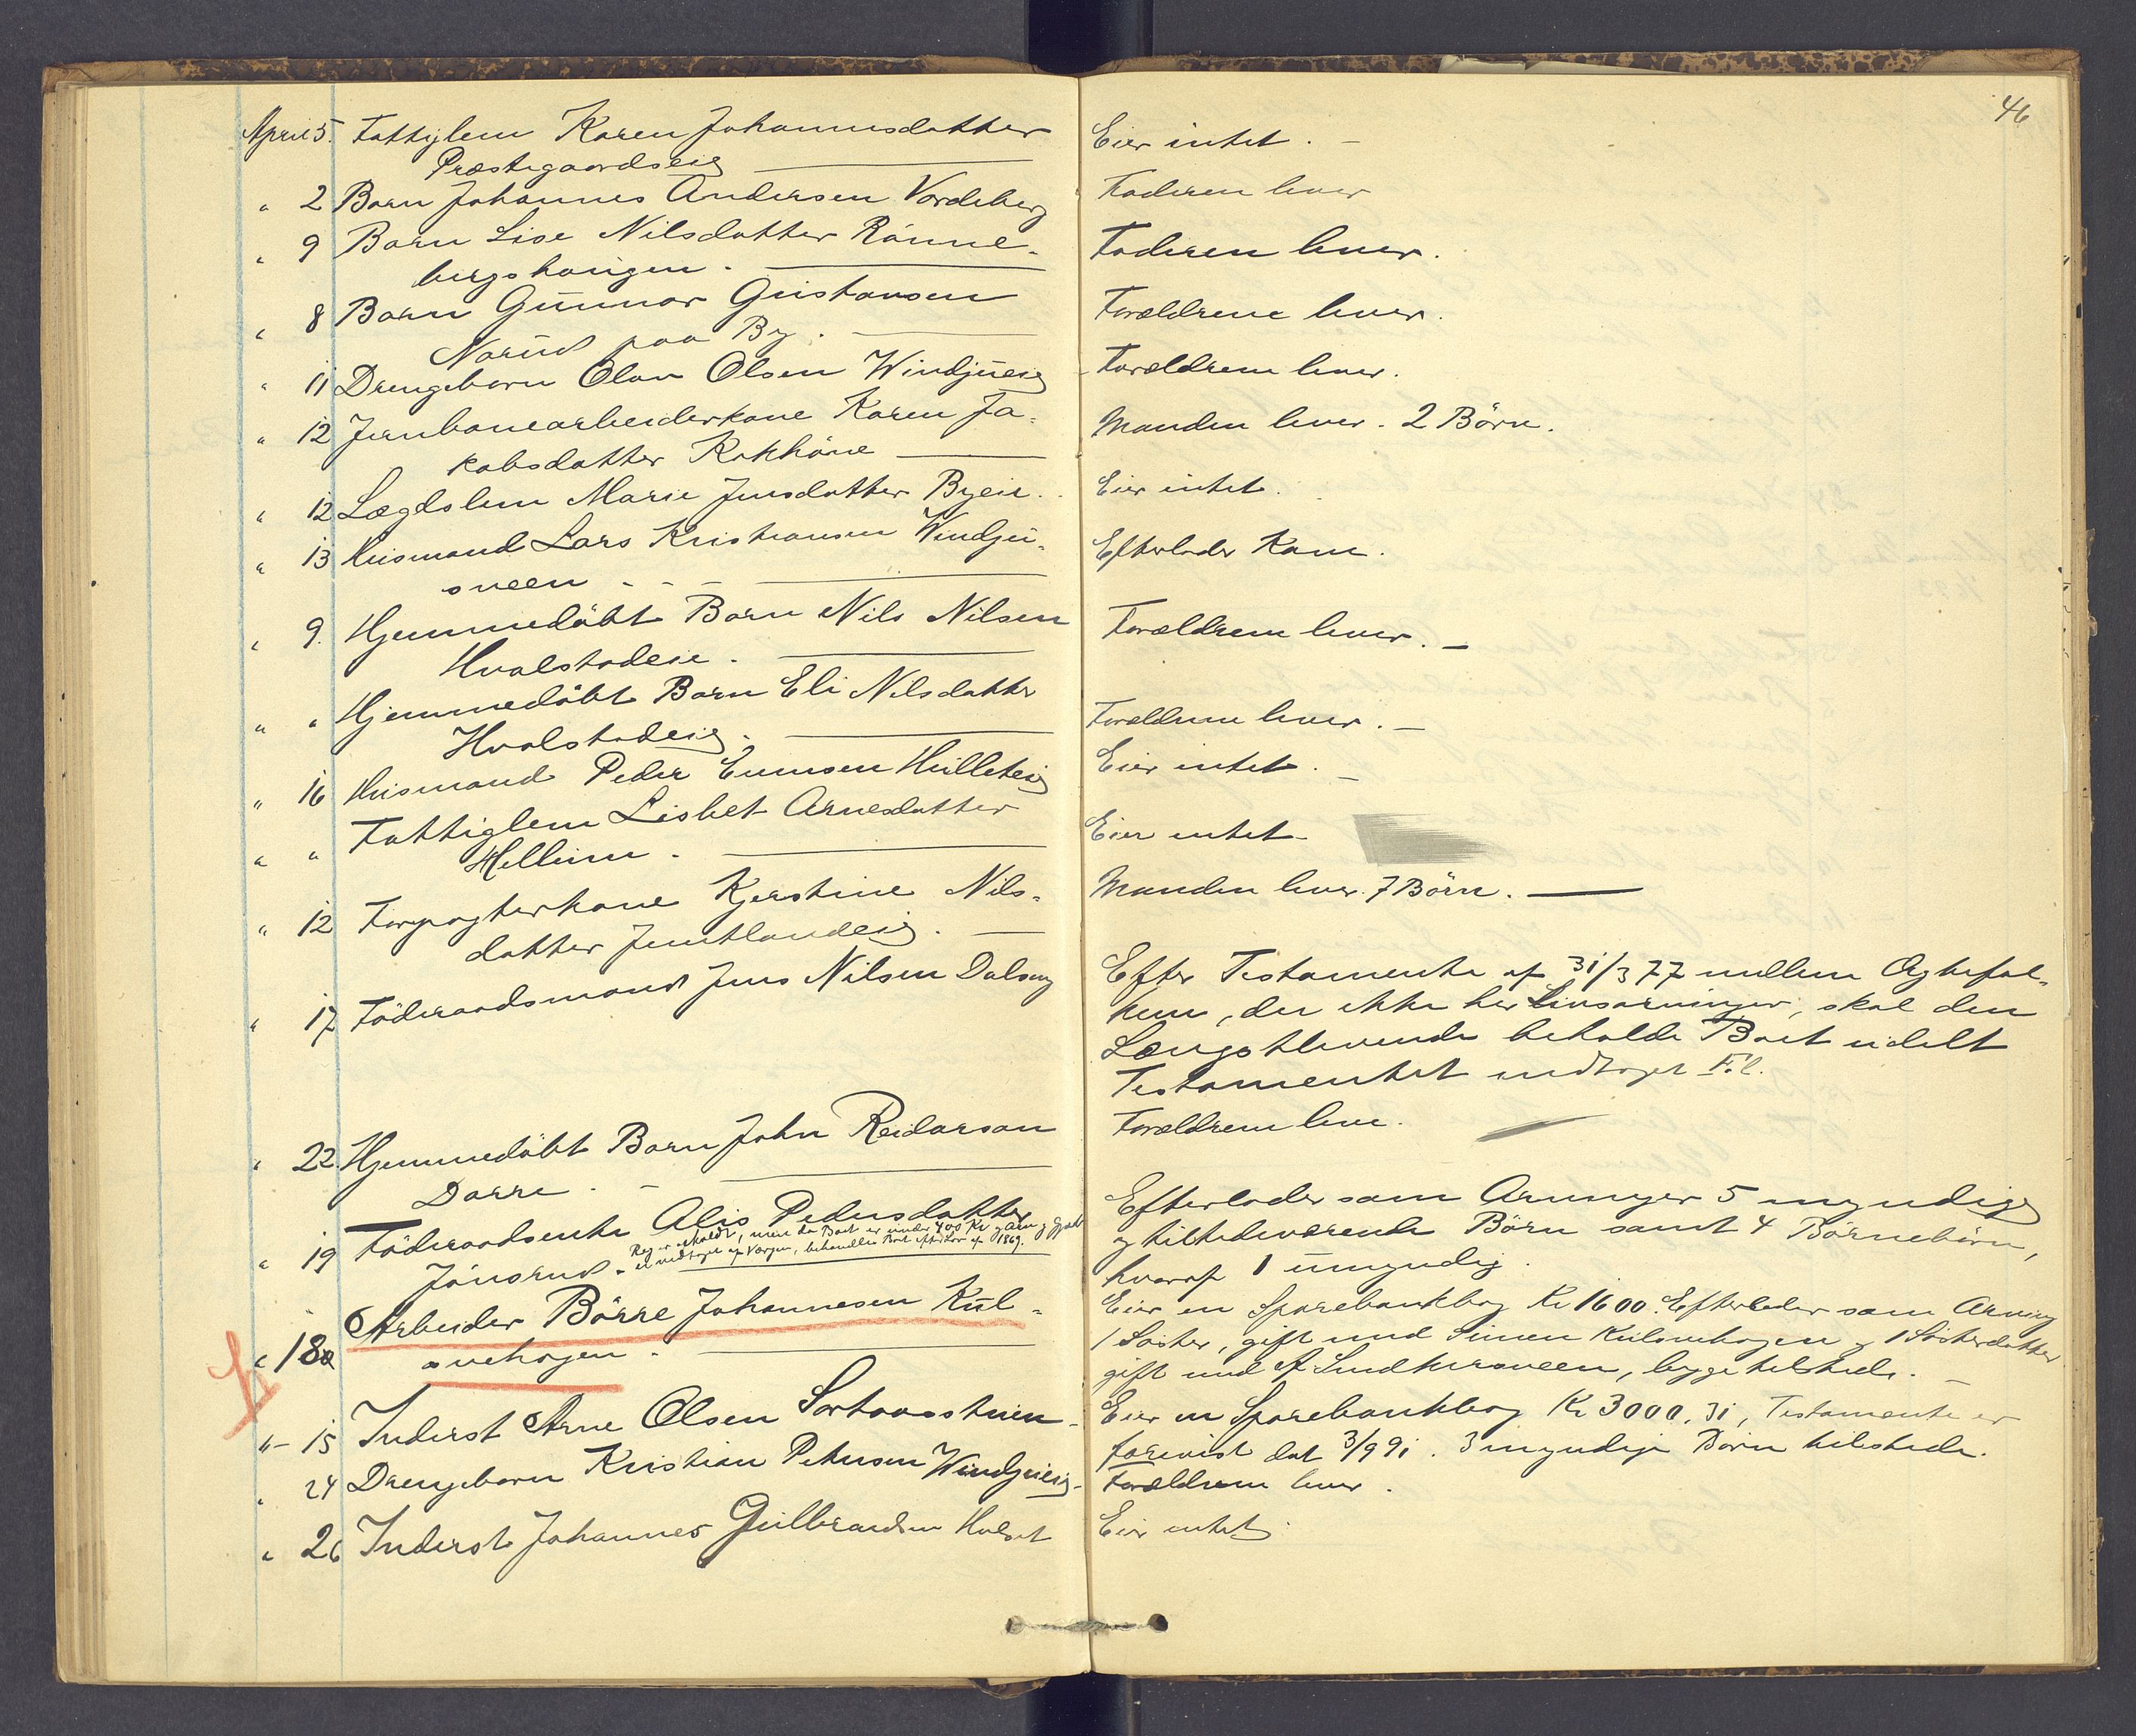 46
April 5. Fattiglem Karen Johannesdatter
Præstegaardseig
Eier intet. -
" 2 Barn Johannes Andersen Vardeberg
Faderen lever
" 9 Barn Lise Nilsdatter Rönne-
bergshaugen.
Faderen lever.
" 8 Barn Gunnar Gustavsen
Narud paa By.
Forældrene lever.
" 11 Drengebarn Olav Olsen Windjueig
Forældrene lever.
" 12 Jernbanearbeiderkone Karen Ja-
kobsdatter
Manden lever. 2 Börn.
" 12 Lægdslem Marie Jensdatter Byeie.
Eier intet.
" 13 Husmand Lars Kristiansen Windju-
sveen
Efterlader Kone.
" 9. Hjemmedöbt Barn Nils Nilsen
Hvalstadeie.
Forældrene lever. -
" " Hjemmedöbt Barn Eli Nilsdatter
Hvalstadeig.
Forældrene lever. -
" 16 Husmand Peder Evensen Hulleteig
Eier intet. -
" " Fattiglem Lisbet Arnesdatter
Hellerne.
Eier intet -
" 12 Forpagterkone Kjerstine Nils-
datter Jemtlandeig.
Manden lever. 7 Börn.
" 17 Föderaadsmand Jens Nilsen Dalseng
Efter Testamente af 31/3 77 mellem Ægtefol-
kene, der ikke har Livsarvinger, skal den
Længstlevende beholde Boet udelt
Testamentet indtaget Fol.
" 22. Hjemmedöbt Barn John Reidarson
Dorre.
Forældrene leve.
" 19 Föderaadsenke Alis Pedersdatter
Jönsrud.
Reg. er afholdt, men da Boet er under 400 Kr og Arv og Gjæld
er vedtaget af Værgen, behandles Boet efter Lov af 1869.
Efterlader som Arvinger 5 myndige
og tilstedeværende Börn samt 4 Börnebörn,
hvoraf 1 umyndig.
" 18 Arbeider Börre Johannesen Kul-
svehagen.
Eier en Sparebankbog Kr 1600. Efterlader som Arving
1 Söster, gift med Simen Kulsvehagen og 1 Sösterdatter
gift med A. Lindkersveen, begge tilstede. -
"- 15 Inderst Arne Olsen
Eier en Sparebankbog Kr 3000.31, Testamente er
forevist dat 3/9 91. 3 myndige Börn tilstede.
" 24 Drengebarn Kristian Petersen Windjueig
Forældrene lever.
" 26 Inderst Johannes Gulbrandsen
Eier intet